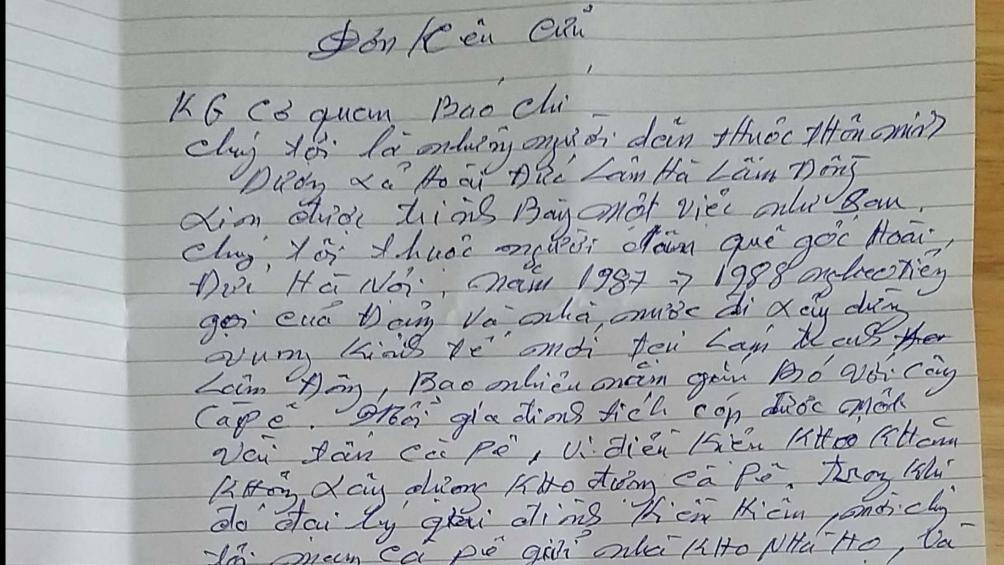 Đơn Kêu Cứu
KG Cơ quan Báo chí
chúng tôi là những người dân thuộc thôn minh
Dương xã Hoài Đức Lâm Hà Lâm Đồng
xin được trình Bày một việc như sau.
chúng tôi thuộc người dân quê gốc Hoài
Đức Hà Nội, năm 1987 → 1988 nghe tiếng
gọi của Đảng và nhà nước đi xây dựng
vùng kinh tế mới tại
Lâm Đồng, Bao nhiêu năm gắn Bó với cây
Capê. Mỗi gia đình tích cóp được một
vài tấn cà Pê, vì điều kiện khó khăn
không xây dựng kho đựng cà Pê. trong khi
đó đại lý gia đình Kiên Kiêm, mời chúng
tôi mang cà pê gửi nhà kho Nhà Họ, Và